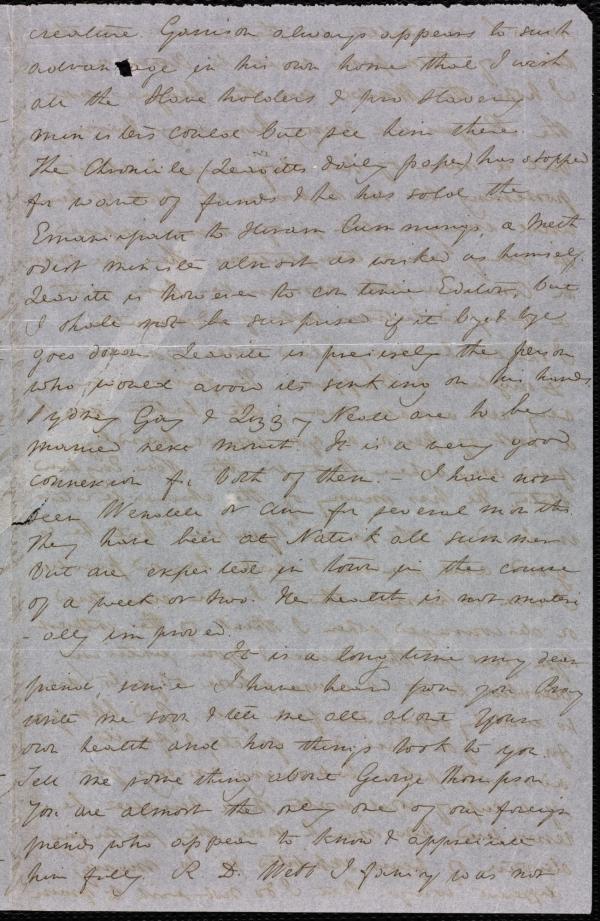 creature. Garrison always appears to such
advantage in his own home that I wish
all the Slave holders & pro Slavery
ministers could but see him there.
The Chronicle (Leavitts daily paper) has stopped
for want of funds & he has sold the
Emancipator to Hiram Cummings, a Meth
odist minister almost as wicked as himself.
Leavitt is however to continue Editor, but
I shall not be surprised if it bye & bye
goes down. Leavitt is precisely the person
who would avoid its sinking on his hands.
Sydney Gay & Lizzy Neall are to be
married next month. It is a very good
connexion for both of them. - I have not
seen Wendell or Ann for several months.
They have been at Natick all summer
but are expected in town in the course
of a week or two. Her health is not materi
-ally improved.
It is a long time my dear
friend, since I have heard from you Pray
write me soon & tell me all about Your
own health and how things look to you.
Tell me some thing about George Thompson.
You are almost the only one of our foreign
friends who appear to know & appreciate
him fully. R. D. Webb I fancy was not